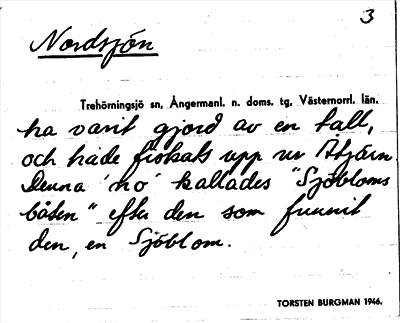 3
Nordsjön
Trehörningsjö sn, Ångermanl. n. doms. tg, Västernorrl. län.
ha varit gjord av en tall,
och hade fiskats upp ur Åtjärn.
Denna 'ho' kallades "Sjöbloms
båten" efter den som funnit
den, en Sjöblom.
TORSTEN BURGMAN 1946.